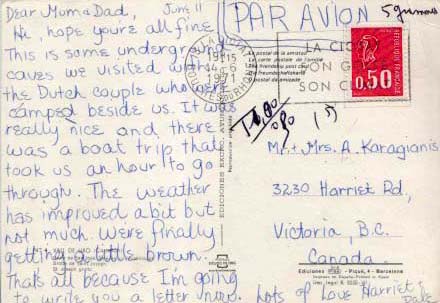 Dear Mum & Dad, June 11
We, hope you're all fine.
This is some underground
caves we visited with
the Dutch couple who were
camped beside us. It was
really nice and there
was a boat trip that
took us an hour to go
through. The weather
has improved a bit but
not much. We're finally
getting a little brown.
Thats all because I'm going
to write you a letter
Lots of Love Harriet
PAR AVION
1971
LA
SON
REPUBLIQUE FRANÇAISE
0.50
La postal de la amistad
La carte postale de l'amitié
The friendship post card
Die freundschaftskarte
T 0,90
0,50
Mr + Mrs. A. Karagianis
3230 Harriet Rd,
Victoria B.C.
Canada
Ediciones Piqué, 4 - Barcelona